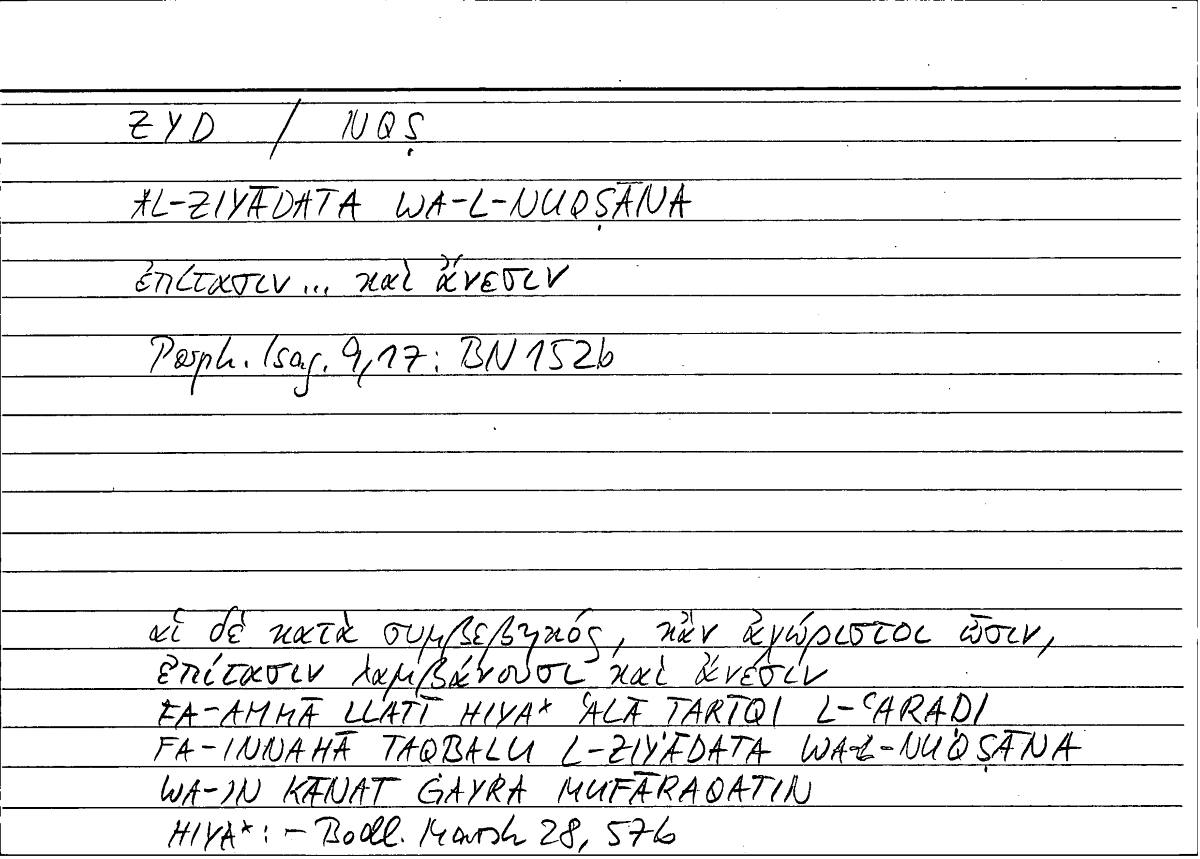 ZYD / NQṢ
AL-ZIYĀDATA WA-L-NUQṢĀNA
ἐπίτασιν... καὶ ἄνεσιν
Porph. Isag. 9,17: BN 152b
αἱ δὲ κατὰ συμβεβηκός, κἂν ἀχώριστοι ὦσιν,
ἐπίτασιν λαμβάνουσι καὶ ἄνεσιν
FA-AMMĀ LLATĪ HIYA* ʿALĀ ṬARĪQI L-ʿARAḌI
FA-INNAHĀ TAQBALU L-ZIYĀDATA WA-L-NUQṢĀNA
WA-IN KĀNAT ĠAYRA MUFĀRAQATIN
HIYA*: – Bodl. Marsh 28, 57b